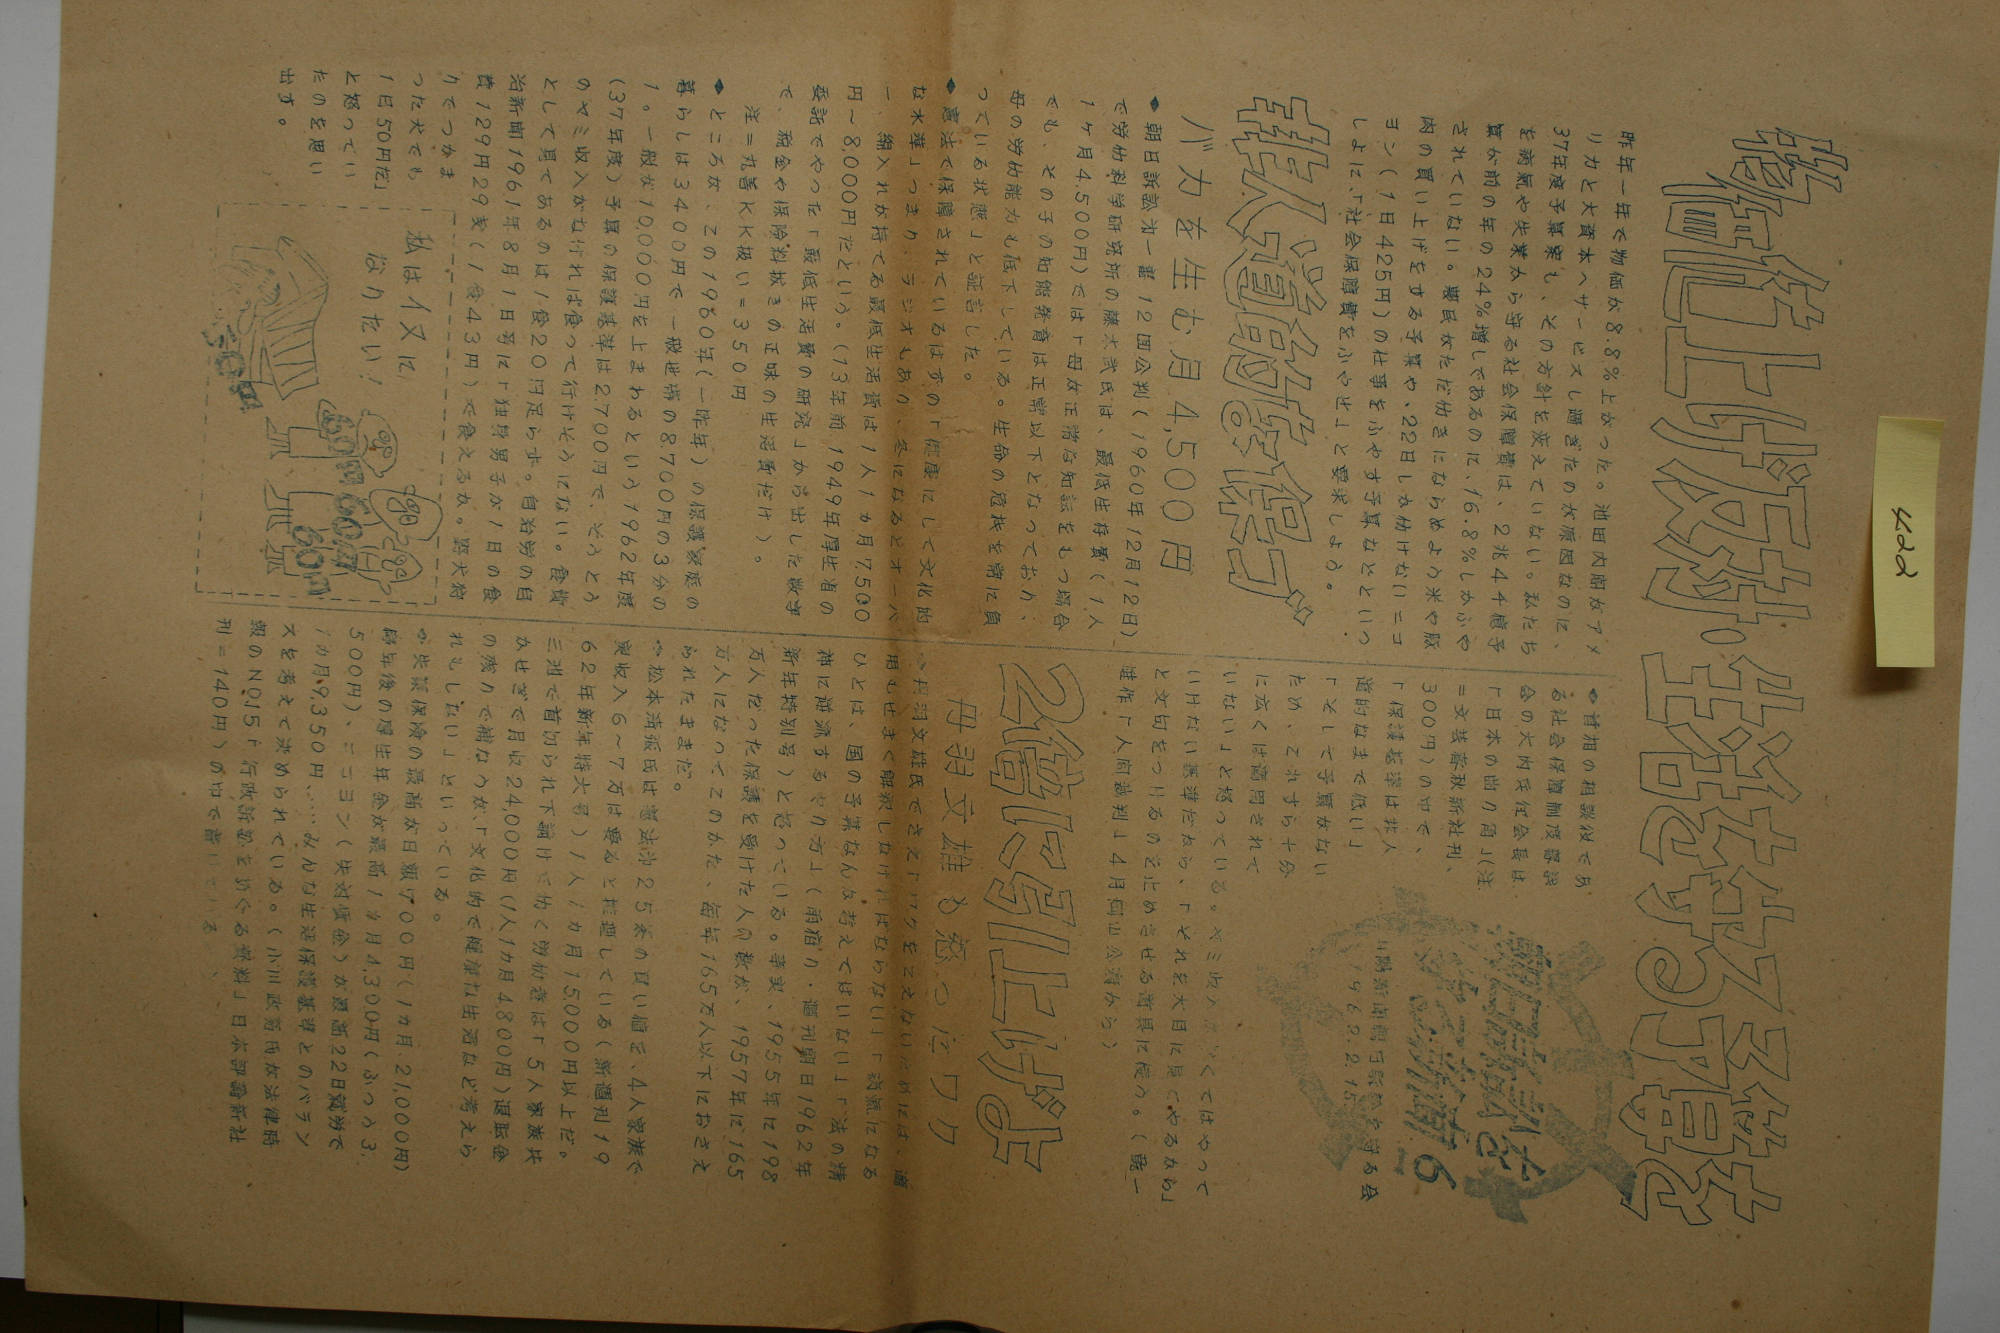 物価値上げ反対・生活できる予算を
昨年一年で物価が8.8%上がった。池田内閣がアメ
リカと大資本へサービスし過ぎたのが原因なのに、
37年度予算案も、その方針を変えていない。私たち
を病気や失業から守る社会保障費は、2兆44億予
算が前の年の24%増しであるのに、16.8%しかふや
されていない。農民がただ働きにならぬよう米や豚
肉の買い上げをする予算や、22日しか働けないニコ
ヨン(1日425円)の仕事をふやす予算などといっ
しょに、「社会保障費をふやせ」と要求しよう。
非人道的な保ゴ
バカを生む月4,500円
◆朝日訴訟第一審12回公判(1960年12月12日)
で労働科学研究所の藤本武氏は、最低生存費(1人
1ケ月4,500円)では「母が正常な知能をもつ場合
でも、その子の知能発育は正常以下となっており、
母の労働能力も低下している。生命の危機を常に負
っている状態」と証言した。
◆憲法で保障されているはずの「健康にして文化的
な水準」つまり、ラジオもあり、冬になるとオーバ
ー、綿入れが持てる最低生活費は1人1カ月7,500
円~8,000円だという。(13年前1949年厚生省の
委託でやった「最低生活費の研究」から出した数字
で、税金や保険料抜きの正味の生活費だけ)。
注=丸善KK扱い=350円
◆ところが、この1960年(一昨年)の保護家庭の
暮らしは3400円で一般世帯の8700円の3分の
1。一般が10,000円を上まわるという1962年度
(37年度)予算の保護基準は2,700円で、そうとう
のヤミ収入がなければ食って行けそうにない。食費
として見てあるのは1食20円足らず。自治労の自
治新聞1961年8月1日号に「独身男子が1日の食
費129円29銭(1食43円)で食えるか。野犬狩
りでつかま
った犬でも
1日50円だ」
と怒ってい
たのを思い
出す。
私はイヌに
なりたい!
60円
60円
60円
◆首相の相談役であ
る社会保障制度審議
会の大内兵衛会長は
「日本の曲り角」(注
=文芸春秋新社刊、
300円)の中で、
「保護基準は非人
道的なまで低い」
「そして予算がない
ため、これすら十分
に広くは適用されて
いない」と怒っている。ヤミ収入がなくてはやって
いけない基準だから、「それを大目に見てやるから」
と文句をつけるのを止めさせる道具に使う。(
作「人間裁判」4月 から)
山陽新聞朝日訴訟を守る会
1962.2.15
16
2倍に引上げよ
丹羽文雄も怒ったワク
◇丹羽文雄氏でさえ「ワクをこえないためには、適
用もせまく解釈しなければならない」「病気になる
ひとは、国の予算なんか考えてはいない」「法の精
神に逆流するやり方」(雨宿り・週刊朝日1962年
新年特別号)と怒っている。事実、1955年に198
万人だった保護を受けた人の数が、1957年に165
万人になってこのかた、毎年165万人以下におさえ
られたままだ。
◇松本清張氏は憲法第25条の買い値を、4人家族で
実収入6~7万は要ると推理している(新週刊19
62年新年特大号)1人1カ月15000円以上だ。
三洲で首切られ下請けで働く労働者は「5人家族共
かせぎで月収24,000円(1人1カ月4,800円)退職金
の残りで補なうが、「文化的で健康な生活など考えら
れもしない」といっている。
◇失業保険の最高が日額700円(1カ月、21,000円)
隔年後の厚生年金が最高1カ月4,300円(ふつう3,
500円)、ニコヨン(失対賃金)が最高22日就労で
1カ月9,350円……みんな生活保護基準とのバラン
スを考えて決められている。(小川政亮氏が法律時
報のNO,15「行政訴訟をめぐる資料」日本評論新社
刊=140円)の中で書いている
422